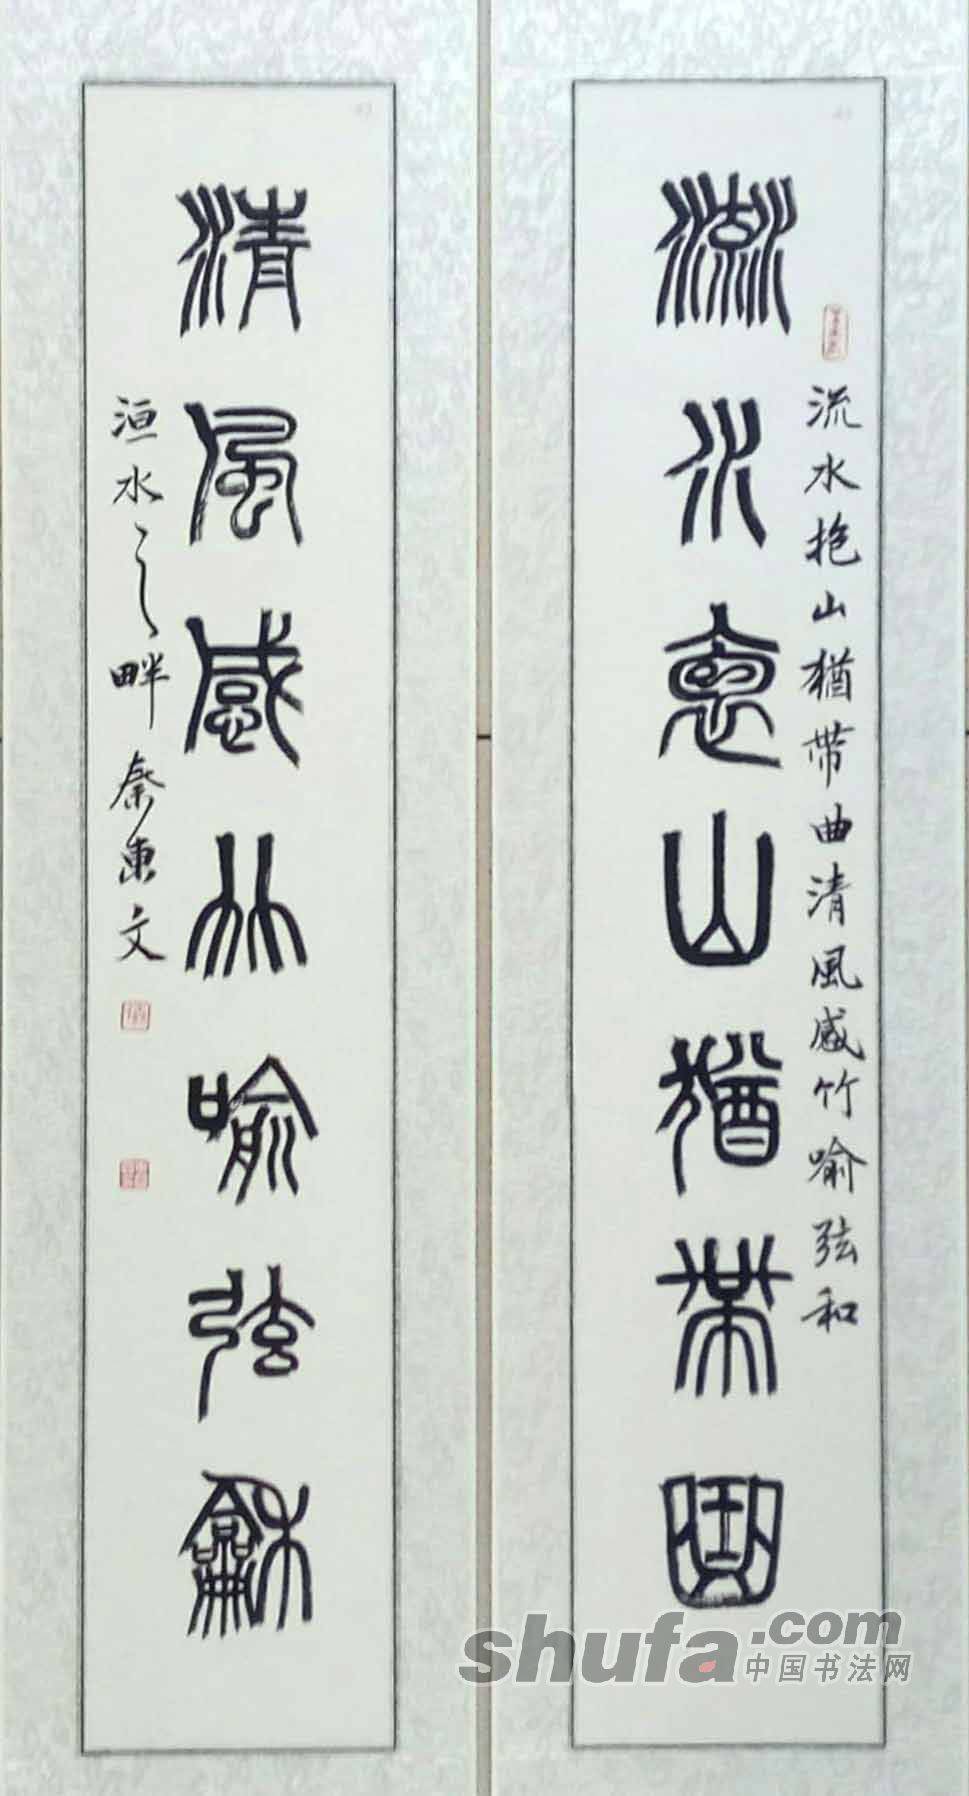 流水裹山猶帶曲
流水抱山猶带曲清風感竹喻弦和
清風感竹喻弦龢
洹水之畔秦東文
shufa.com
中国书法网